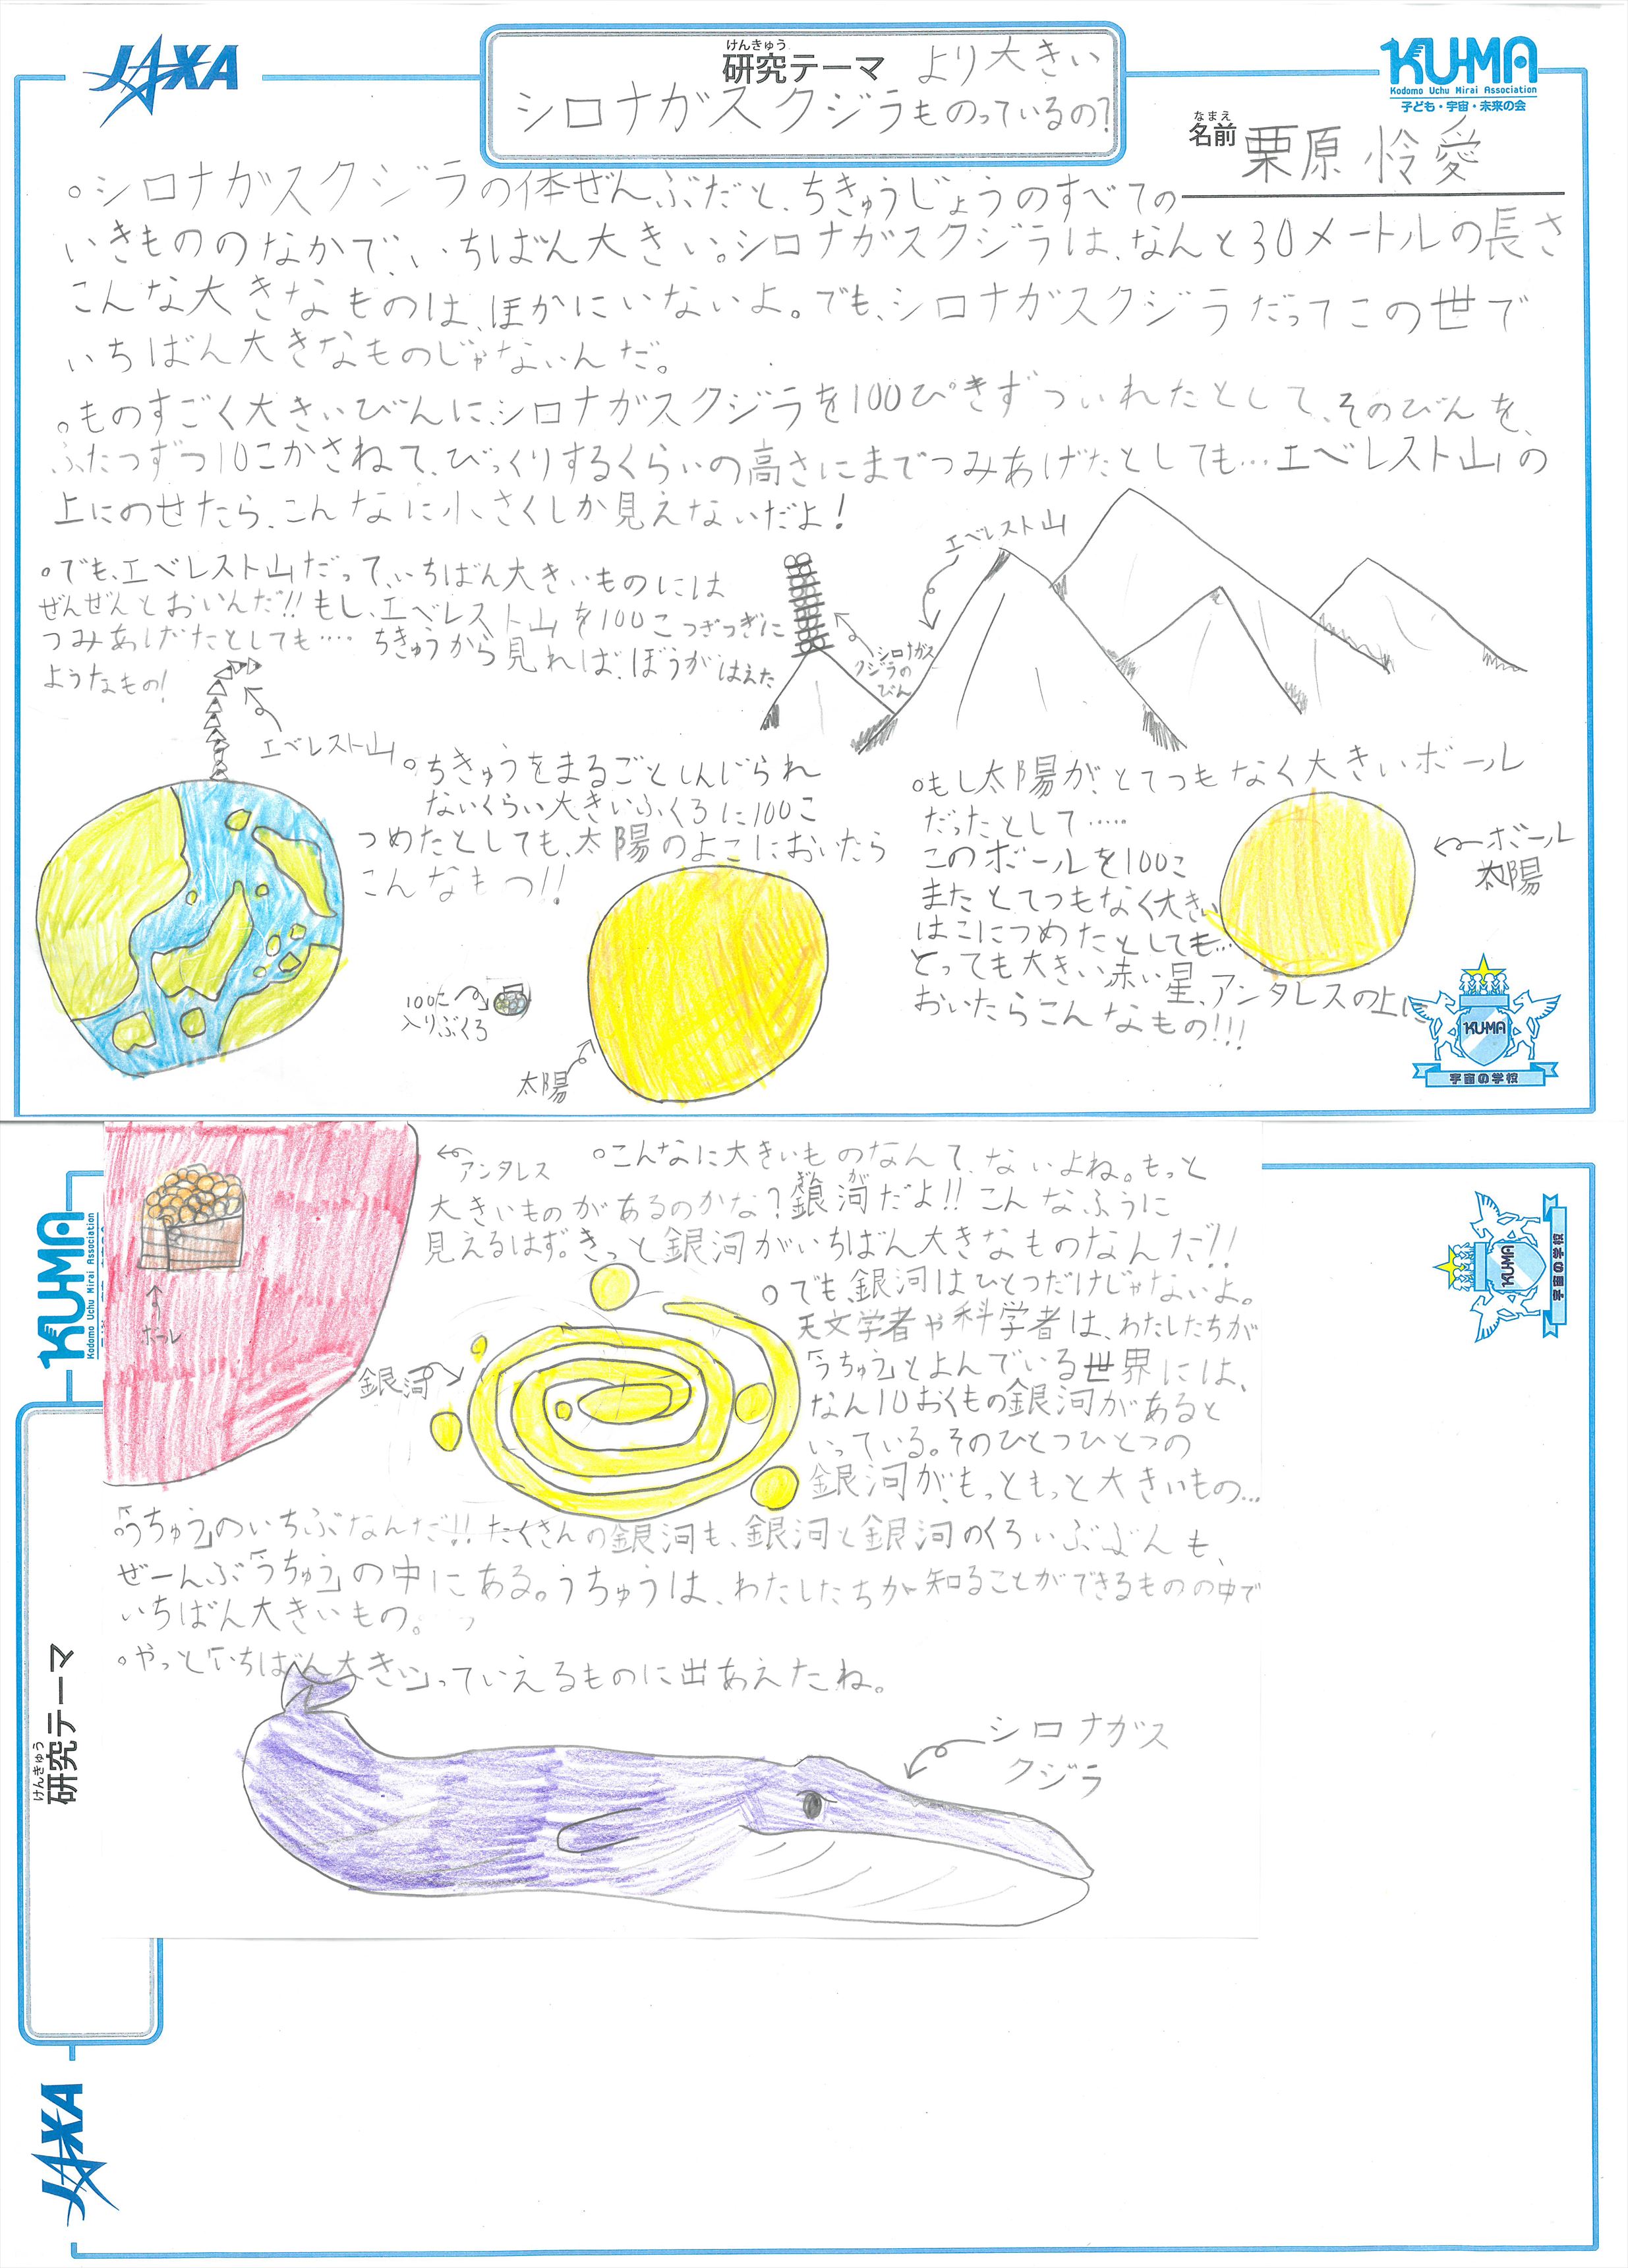 JAXA
けんきゅう
研究テーマ
より大きい
シロナガスクジラものっているの?
KU-MA
Kodomo Uchu Mirai Association
子ども・宇宙・未来の会
なまえ
名前 栗原 怜愛
○シロナガスクジラの体ぜんぶだと、ちきゅうじょうのすべての
いきもののなかで、いちばん大きい。シロナガスクジラは、なんと30メートルの長さ
こんな大きなものは、ほかにいないよ。でも、シロナガスクジラだってこの世で
いちばん大きなものじゃないんだ。
○ものすごく大きいびんに、シロナガスクジラを100ぴきずついれたとして、そのびんを、
ふたつずつ10こかさねて、びっくりするくらいの高さにまでつみあげたとしても…エベレスト山の
上にのせたら、こんなに小さくしか見えないだよ!
エベレスト山
シロナガス
クジラの
びん
○でも、エベレスト山だって、いちばん大きいものには
ぜんぜんとおいんだ!!もし、エベレスト山を100こつぎつぎに
つみあげだたとしても…. ちきゅうから見れば、ぼうがはえた
ようなもの!
エベレスト山
○ちきゅうをまるごとしんじられ
ないくらい大きいふくろに100こ
つめたとしても、太陽のよこにおいたら
こんなもの!!
100た
入りぶくろ
太陽
○もし太陽が、とてつもなく大きいボール
だったとして…..
このボールを100こ
またとてつもなく大きい
はこにつめたとしても…
とっても大きい赤い星、アンタレスの上に
おいたらこんなもの!!!
ボール
太陽
KU-MA
宇宙の学校
アンタレス
ボール
○こんなに大きいものなんて、ないよね。もっと
大きいものがあるのかな?銀河だよ!!こんなふうに
見えるはず。きっと銀河がいちばん大きなものなんだ!!
銀河
○でも、銀河はひとつだけじゃないよ。
天文学者や科学者は、わたしたちが
「うちゅう」とよんでいる世界には、
なん10おくもの銀河があると
いっている。そのひとつひとつの
銀河が、もっともっと大きいもの…
「うちゅう」のいちぶなんだ!!たくさんの銀河も、銀河と銀河のくろいぶぶんも、
ぜーんぶ「うちゅう」の中にある。うちゅうは、わたしたちが知ることができるものの中で
いちばん大きいもの。
○やっと「いちばん大きい」っていえるものに出あえたね。
シロナガス
クジラ
KU-MA
Kodomo Uchu Mirai Association
KU-MA
宇宙の学校
けんきゅう
研究テーマ
JAXA